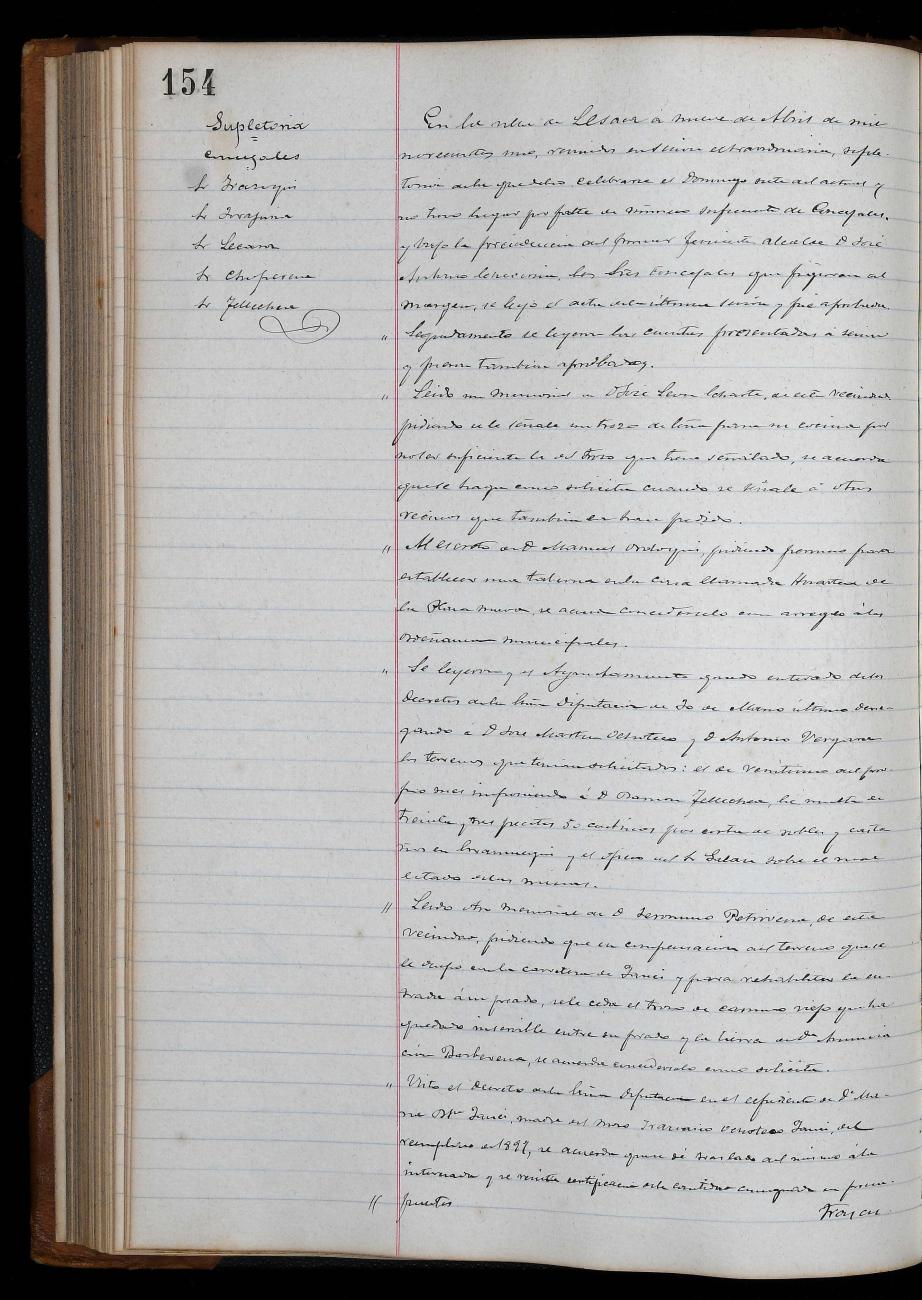 154
Supletoria
Concejales
Sr Irazoqui
Sr
Sr Lecaroz
Sr
Sr Tellechea
En la villa de Lesaca a nueve de Abril de mil
novecientos uno, reunidos en sesion extraordinaria, suple-
toria de la que debio celebrarse el Domingo siete del actual y
no tuvo lugar por falta de número suficiente de Concejales,
y bajo la presidencia del primer Teniente Alcalde D José
Antonio los Sres Concejales que figuran al
margen, se leyó el acta de la última sesión y fué aprobada.
" Seguidamente se leyeron las cuentas presentadas á
y fueron tambien aprobadas.
" Leido un memorial de D José Leon de esta vecindad
pidiendo se le señale un trozo de leña para su cocina por
no ser suficiente la del trozo que tiene señalado, se acuerda
que se haga como solicita cuando se señale á otros
vecinos que tambien lo han pedido.
" Al escrito de D Manuel Ordoqui, pidiendo permiso para
establecer una taberna en la casa llamada de
la Plaza nueva, se acuerda concedérselo con arreglo á las
ordenanzas municipales.
" Se leyeron y el Ayuntamiento quedó enterado de los
Decretos de la Exma Diputacion de 30 de Marzo último dene-
gando a D Jose Martin Ochoteco y D Antonio Vergara
los terrenos que tenian solicitados: el de veintiuno del pro-
pio mes imponiendo á D Ramon Tellechea, la multa de
treinta y tres pesetas 50 centimos por corta de robles y casta-
ños en y el oficio del Sr sobre el mal
estado de las mismas.
" Leido otro memorial de D Jeronimo Petrirena, de esta
vecindad, pidiendo que en compensacion del terreno que se
le ocupó en la carretera de Yanci y para rehabilitar la en-
trada á su prado, se le ceda el trozo de camino viejo que ha
quedado inservible entre su prado y la tierra de Dª Anuncia
cion Barberena, se acuerda concederselo como solicita.
" Visto el Decreto de la Exma Diputacion en el expediente de Dª Ma-
ria Yanci, madre del mozo Francisco Ochoteco Yanci, del
reemplazo de 1897, se acuerda que se dé traslado del mismo á la
interesada y se remita certificacion de la cantidad consignada en presu-
" puestos